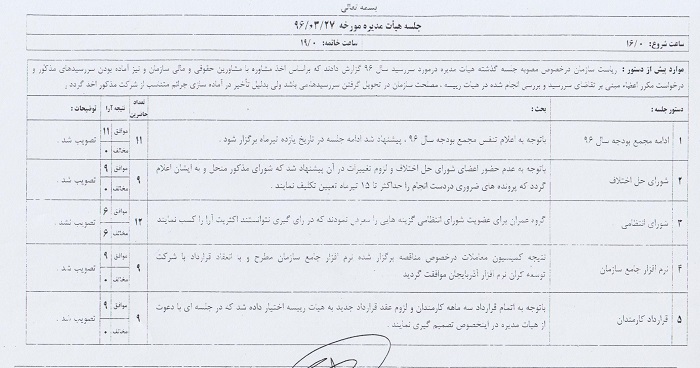 بسمه تعالی
جلسه هیأت مدیره مورخه ۹۶/۰۳/۲۷
ساعت شروع: ۱۶/۰ ساعت خاتمه: ۱۹/۰
موارد پیش از دستور: ریاست سازمان درخصوص مصوبه جلسه گذشته هیات مدیره درمورد سررسید سال ۹۶ گزارش دادند که براساس اخذ مشاوره با مشاورین حقوقی و مالی سازمان و نیز آماده بودن سررسیدهای مذکور و
درخواست مکرر اعضاء مبنی بر تقاضای سررسید و بررسی انجام شده در هیات رییسه، مصلحت سازمان در تحویل گرفتن سررسیدها می باشد ولی بدلیل تأخیر در آماده سازی جرائم متناسب از شرکت مذکور اخذ گردد.
دستور جلسه: بحث: تعداد حاضرین نتیجه آرا توضیحات:
۱ ادامه مجمع بودجه سال ۹۶ باتوجه به اعلام تنفس مجمع بودجه سال ۹۶، پیشنهاد شد ادامه جلسه در تاریخ یازده تیرماه برگزار شود. ۱۱ موافق ۱۱ تصویب شد.
مخالف ۰
۲ شورای حل اختلاف باتوجه به عدم حضور اعضای شورای حل اختلاف و لزوم تغییرات در آن پیشنهاد شد که شورای مذکور منحل و به ایشان اعلام ۹ موافق ۹ تصویب شد.
گردد که پرونده های ضروری دردست انجام را حداکثر تا ۱۵ تیرماه تعیین تکلیف نمایند. مخالف ۰
۳ شورای انتظامی گروه عمران برای عضویت شورای انتظامی گزینه هایی را معرفی نمودند که در رای گیری نتوانستند اکثریت آرا را کسب نمایند ۱۲ موافق ۶ تصویب نشد.
مخالف ۶
۴ نرم افزار جامع سازمان نتیجه کمیسیون معاملات درخصوص مناقصه برگزار شده نرم افزار جامع سازمان مطرح و با انعقاد قرارداد با شرکت ۹ موافق ۹ تصویب شد.
توسعه گران نرم افزار آذربایجان موافقت گردید مخالف ۰
۵ قرارداد کارمندان باتوجه به اتمام قرارداد سه ماهه کارمندان و لزوم عقد قرارداد جدید به هیات رییسه اختیار داده شد که در جلسه ای با دعوت ۹ موافق ۹ تصویب شد.
از هیات مدیره دراینخصوص تصمیم گیری نمایند. مخالف ۰